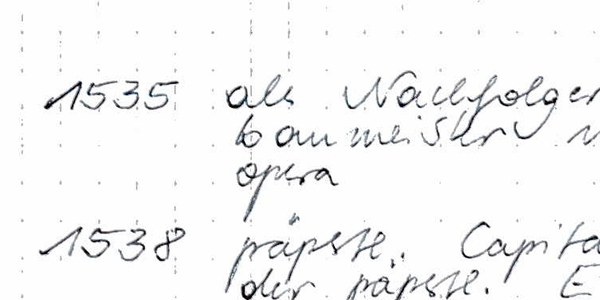 1535 als Nachfolger
baumeister
opera
1538 päpstl. Capita
der päpstl. E